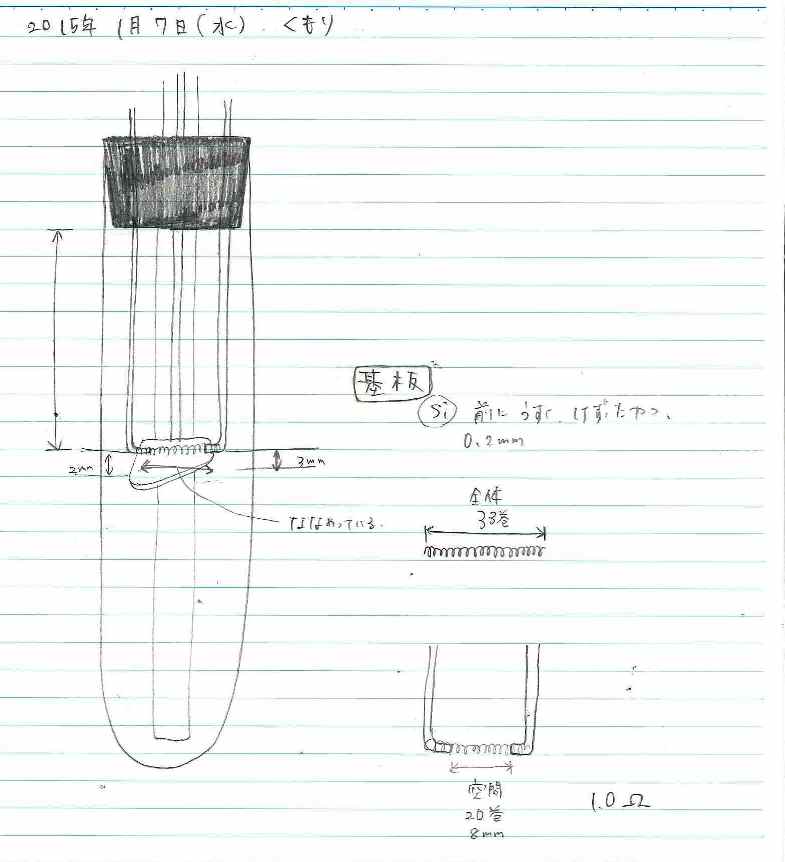 2015年 1月7日(水). くもり
基板
Si 前に うすく けずったやつ.
0.2mm
2mm
3mm
ななめっている.
全体
33巻
空間
20巻
8mm
1.0Ω